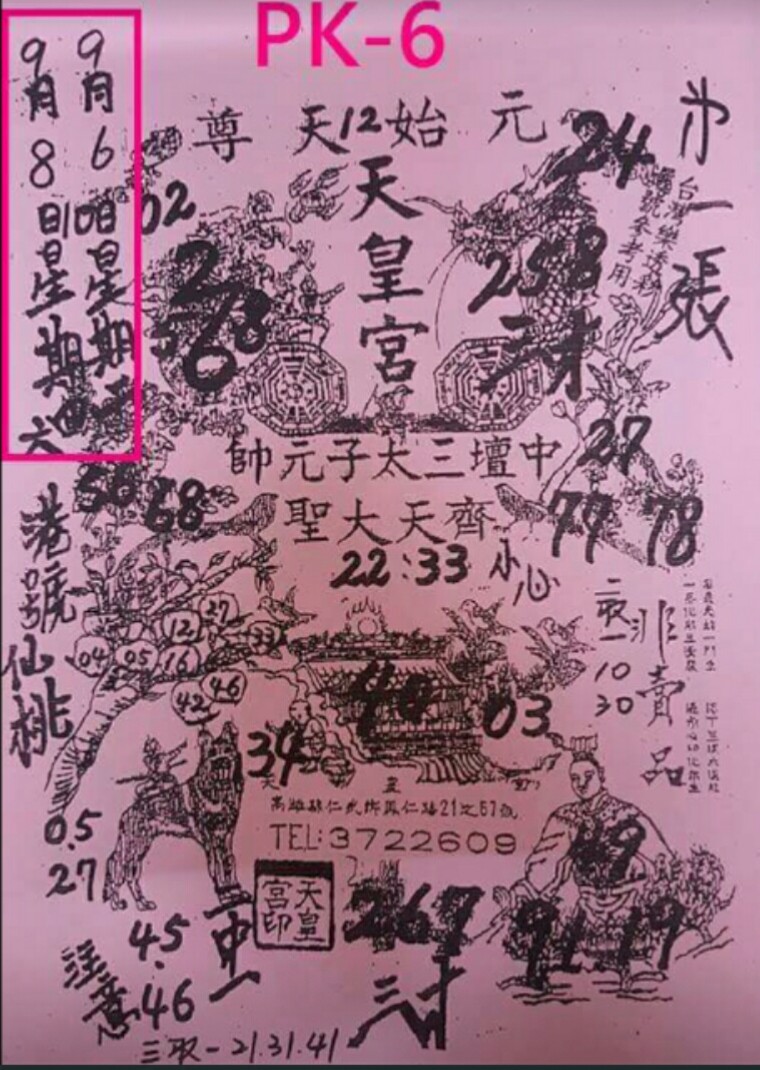 PK-6
9月6日星期
9月8日星期六
10
元始天尊
12
天皇宮
24
第一張
台灣樂透彩
號參考用
02
258
三才
2
6
0
中壇三太子元帥
27
58
68
齊天大聖
77 78
22:33 小心
港號仙桃
12
27
33
04
05
16
42
46
二取一
10
30
非賣品
40
03
34
天皇宮
高雄縣仁武鄉鳳仁路21之67號
TEL:3722609
05
27
49
天皇
宮印
267
91.19
三才
45.
46
二中一
注意
三取一21.31.41